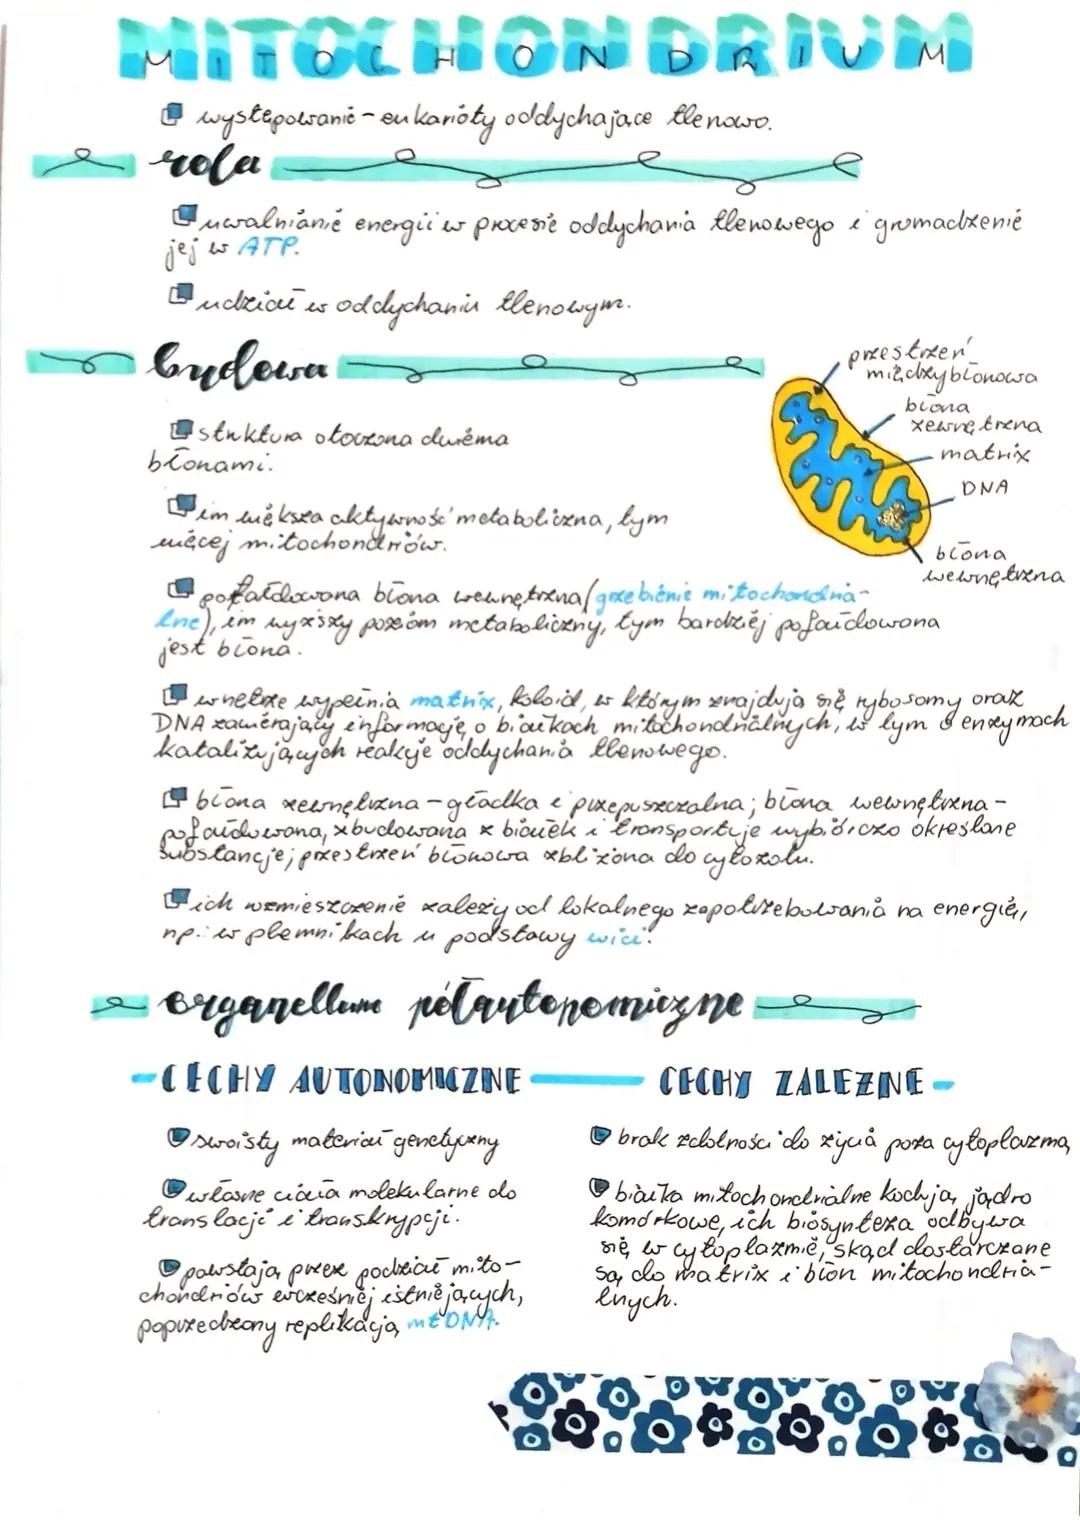 MITOCHONDRIUM
występowanie - eukarioty oddychające tlenowo.
rola
uwalnianie energii w procesie oddychania tlenowego i gromadzenie
jej w ATP.
udział w oddychaniu tlenowym.
budowa
przestrzeń
międzybłonowa
błona
zewnętrzna
matrix
DNA
błona
wewnętrzna
struktura otoczona dwiema
błonami.
im większa aktywność metaboliczna, tym
więcej mitochondriów.
pofałdowana błona wewnętrzna (grzebienie mitochondria-
lne), im wyższy poziom metaboliczny, tym bardziej pofałdowana
jest błona.
wnętrze wypełnia matrix, koloid, w którym znajdują się rybosomy oraz
DNA zawierający informację o białkach mitochondrialnych, w tym o enzymach
katalizujących reakcje oddychania tlenowego.
błona zewnętrzna - gładka i przepuszczalna; błona wewnętrzna -
pofałdowana, zbudowana z białek i transportuje wybiórczo określone
substancje; przestrzeń błonowa zbliżona do cytozolu.
ich wzmieszczenie zależy od lokalnego zapotrzebowania na energię,
np.: w plemnikach u podstawy wici.
organellum półautonomiczne
CECHY AUTONOMICZNE
swoisty materiał genetyczny
własne ciała molekularne do
translacji i transkrypcji.
powstają przez podział mito-
chondriów wcześniej istniejących,
poprzedzony replikacją mtDNA.
CECHY ZALEŻNE
brak zdolności do życia poza cytoplazmą
białka mitochondrialne kodują jądro
komórkowe, ich biosynteza odbywa
się w cytoplazmie, skąd dostarczane
są do matrix i błon mitochondria-
lnych.